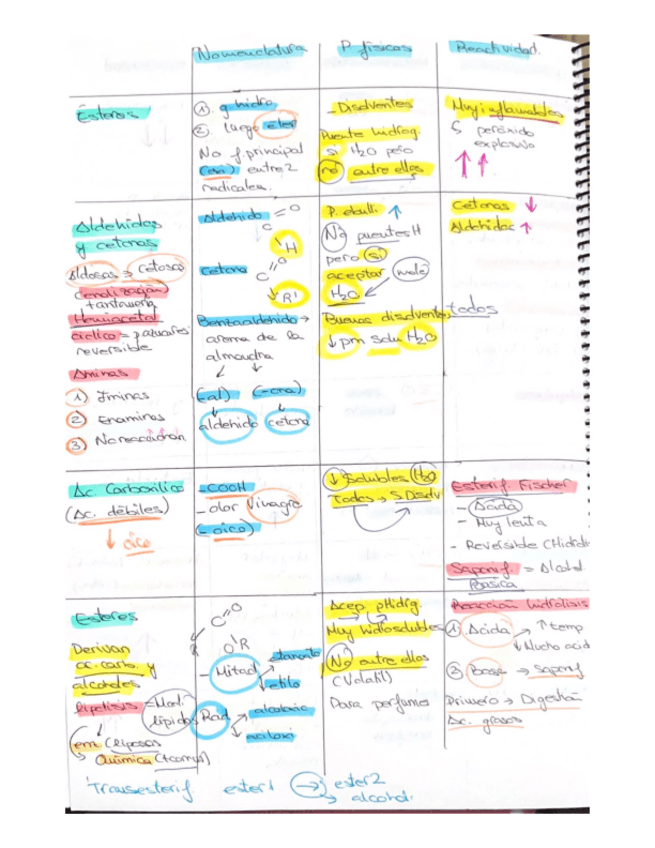 Nomenclatura
P físicas
Reactividad.
Ésteres
① g. hidro
② luego eter
No f. principal
(oxi) entre 2
radicales.
- Disolventes
Puente hidróg.
si H2O pero
no entre ellos
Muy inflamables
peróxido
explosivo
↑↑
Aldehidos
y cetonas
Aldosas > cetosas
Hemiacetal
cíclico =
reversible
Aminas
① Iminas
② Enaminas
③ No reaccionan
Aldehido
C
O
H
Cetona
C
O
R'
Benzaaldehido →
aroma de la
almendra
(-al) (-ona)
aldehido cetona
P. ebull. ↑
No puentes H
pero si
aceptar
H2O
Buenos disolvente, todos
↓ pm solu H2O
Cetonas ↓
Aldehidos ↑
Ac. Carboxílico
(Ac. débiles)
↓ oico
-COOH
- olor Vinagre
(-oico)
↓ Solubles H2O
Todos → S Disolv
Esterif Fischer
- Ácida
- Muy lenta
- Reversible (Hidról
Saponif. = Alcohol.
Básica
Esteres
Derivan
ac. carb. y
alcoholes
lipólisis = Mol.
lípidos
Química
C
O
O R
- Mitad
etilo
Rad
Acep. pHidróg.
Muy hidrosolubles
No entre ellos
(Volatil)
Para perfumes
Reacción hidrólisis
① Ácida → ↑ temp
↓ Mucho acid
② Base → Saponif
Primero → Digestión
Ac. grasos
Transesterif ester1 → ester2
→ alcohol.